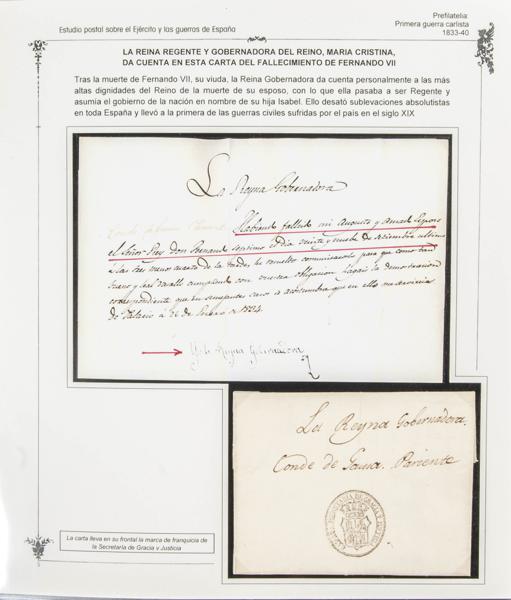 Estudio postal sobre el Ejército y las guerras de España
Prefilatelia:
Primera guerra carlista
1833-40
LA REINA REGENTE Y GOBERNADORA DEL REINO, MARIA CRISTINA,
DA CUENTA EN ESTA CARTA DEL FALLECIMIENTO DE FERNANDO VII
Tras la muerte de Fernando VII, su viuda, la Reina Gobernadora da cuenta personalmente a las más
altas dignidades del Reino de la muerte de su esposo, con lo que ella pasaba a ser Regente y
asumía el gobierno de la nación en nombre de su hija Isabel. Ello desató sublevaciones absolutistas
en toda España y llevó a la primera de las guerras civiles sufridas por el país en el siglo XIX
La Reyna Gobernadora
Habiendo fallido mi Augusto y Amado Esposo
el Señor Rey don Fernando septimo el dia veinte y nueve de setiembre ultimo
a las tres menos cuarto de la tarde, he resuelto comunicaroslo para que como
y leal vasallo cumpliendo con vuestra obligacion hagais la demostracion
correspondiente que en semejantes casos se acostumbra que en ello me serviréis
de Palacio á de Enero de 1834.
Yo la Reyna Gobernadora
La Reyna Gobernadora.
Conde de Pariente
La carta lleva en su frontal la marca de franquicia de
la Secretaría de Gracia y Justicia